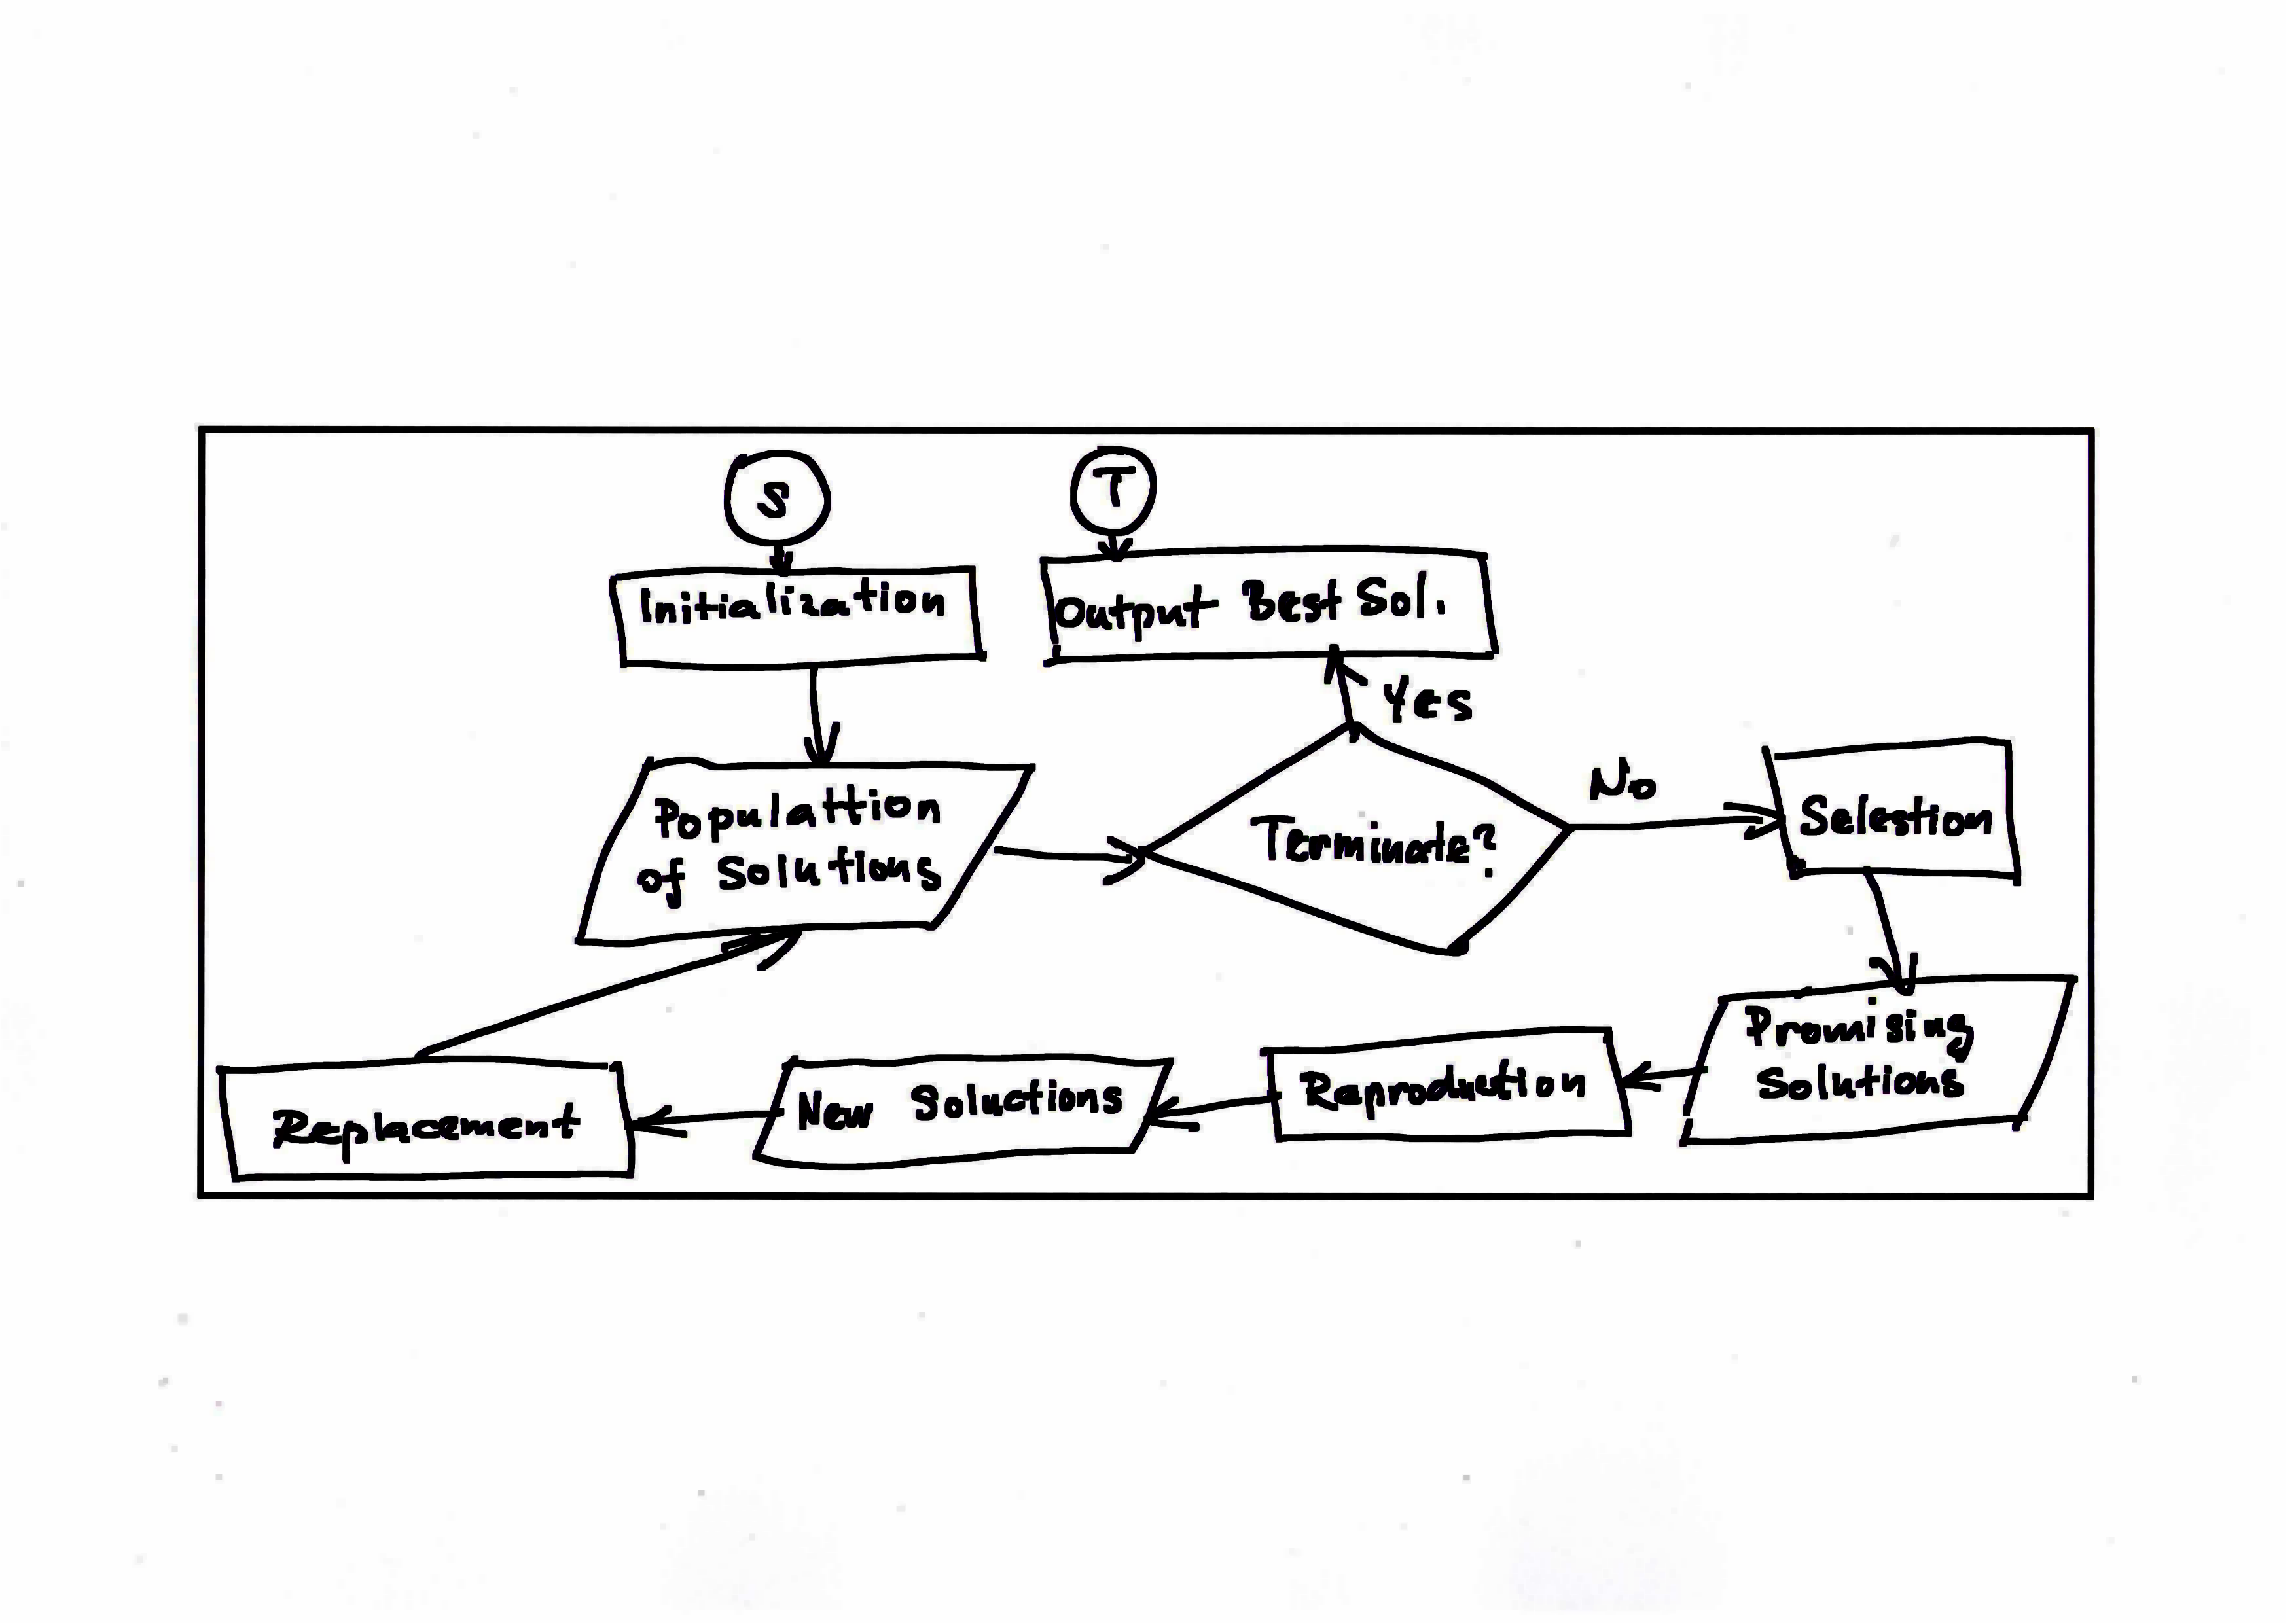 S
T
Initialization
Output Best Sol.
Yes
Populattion
of Solutions
Terminate?
No
Selestion
Promising
Solutions
Reproduction
New Soluctions
Replacement